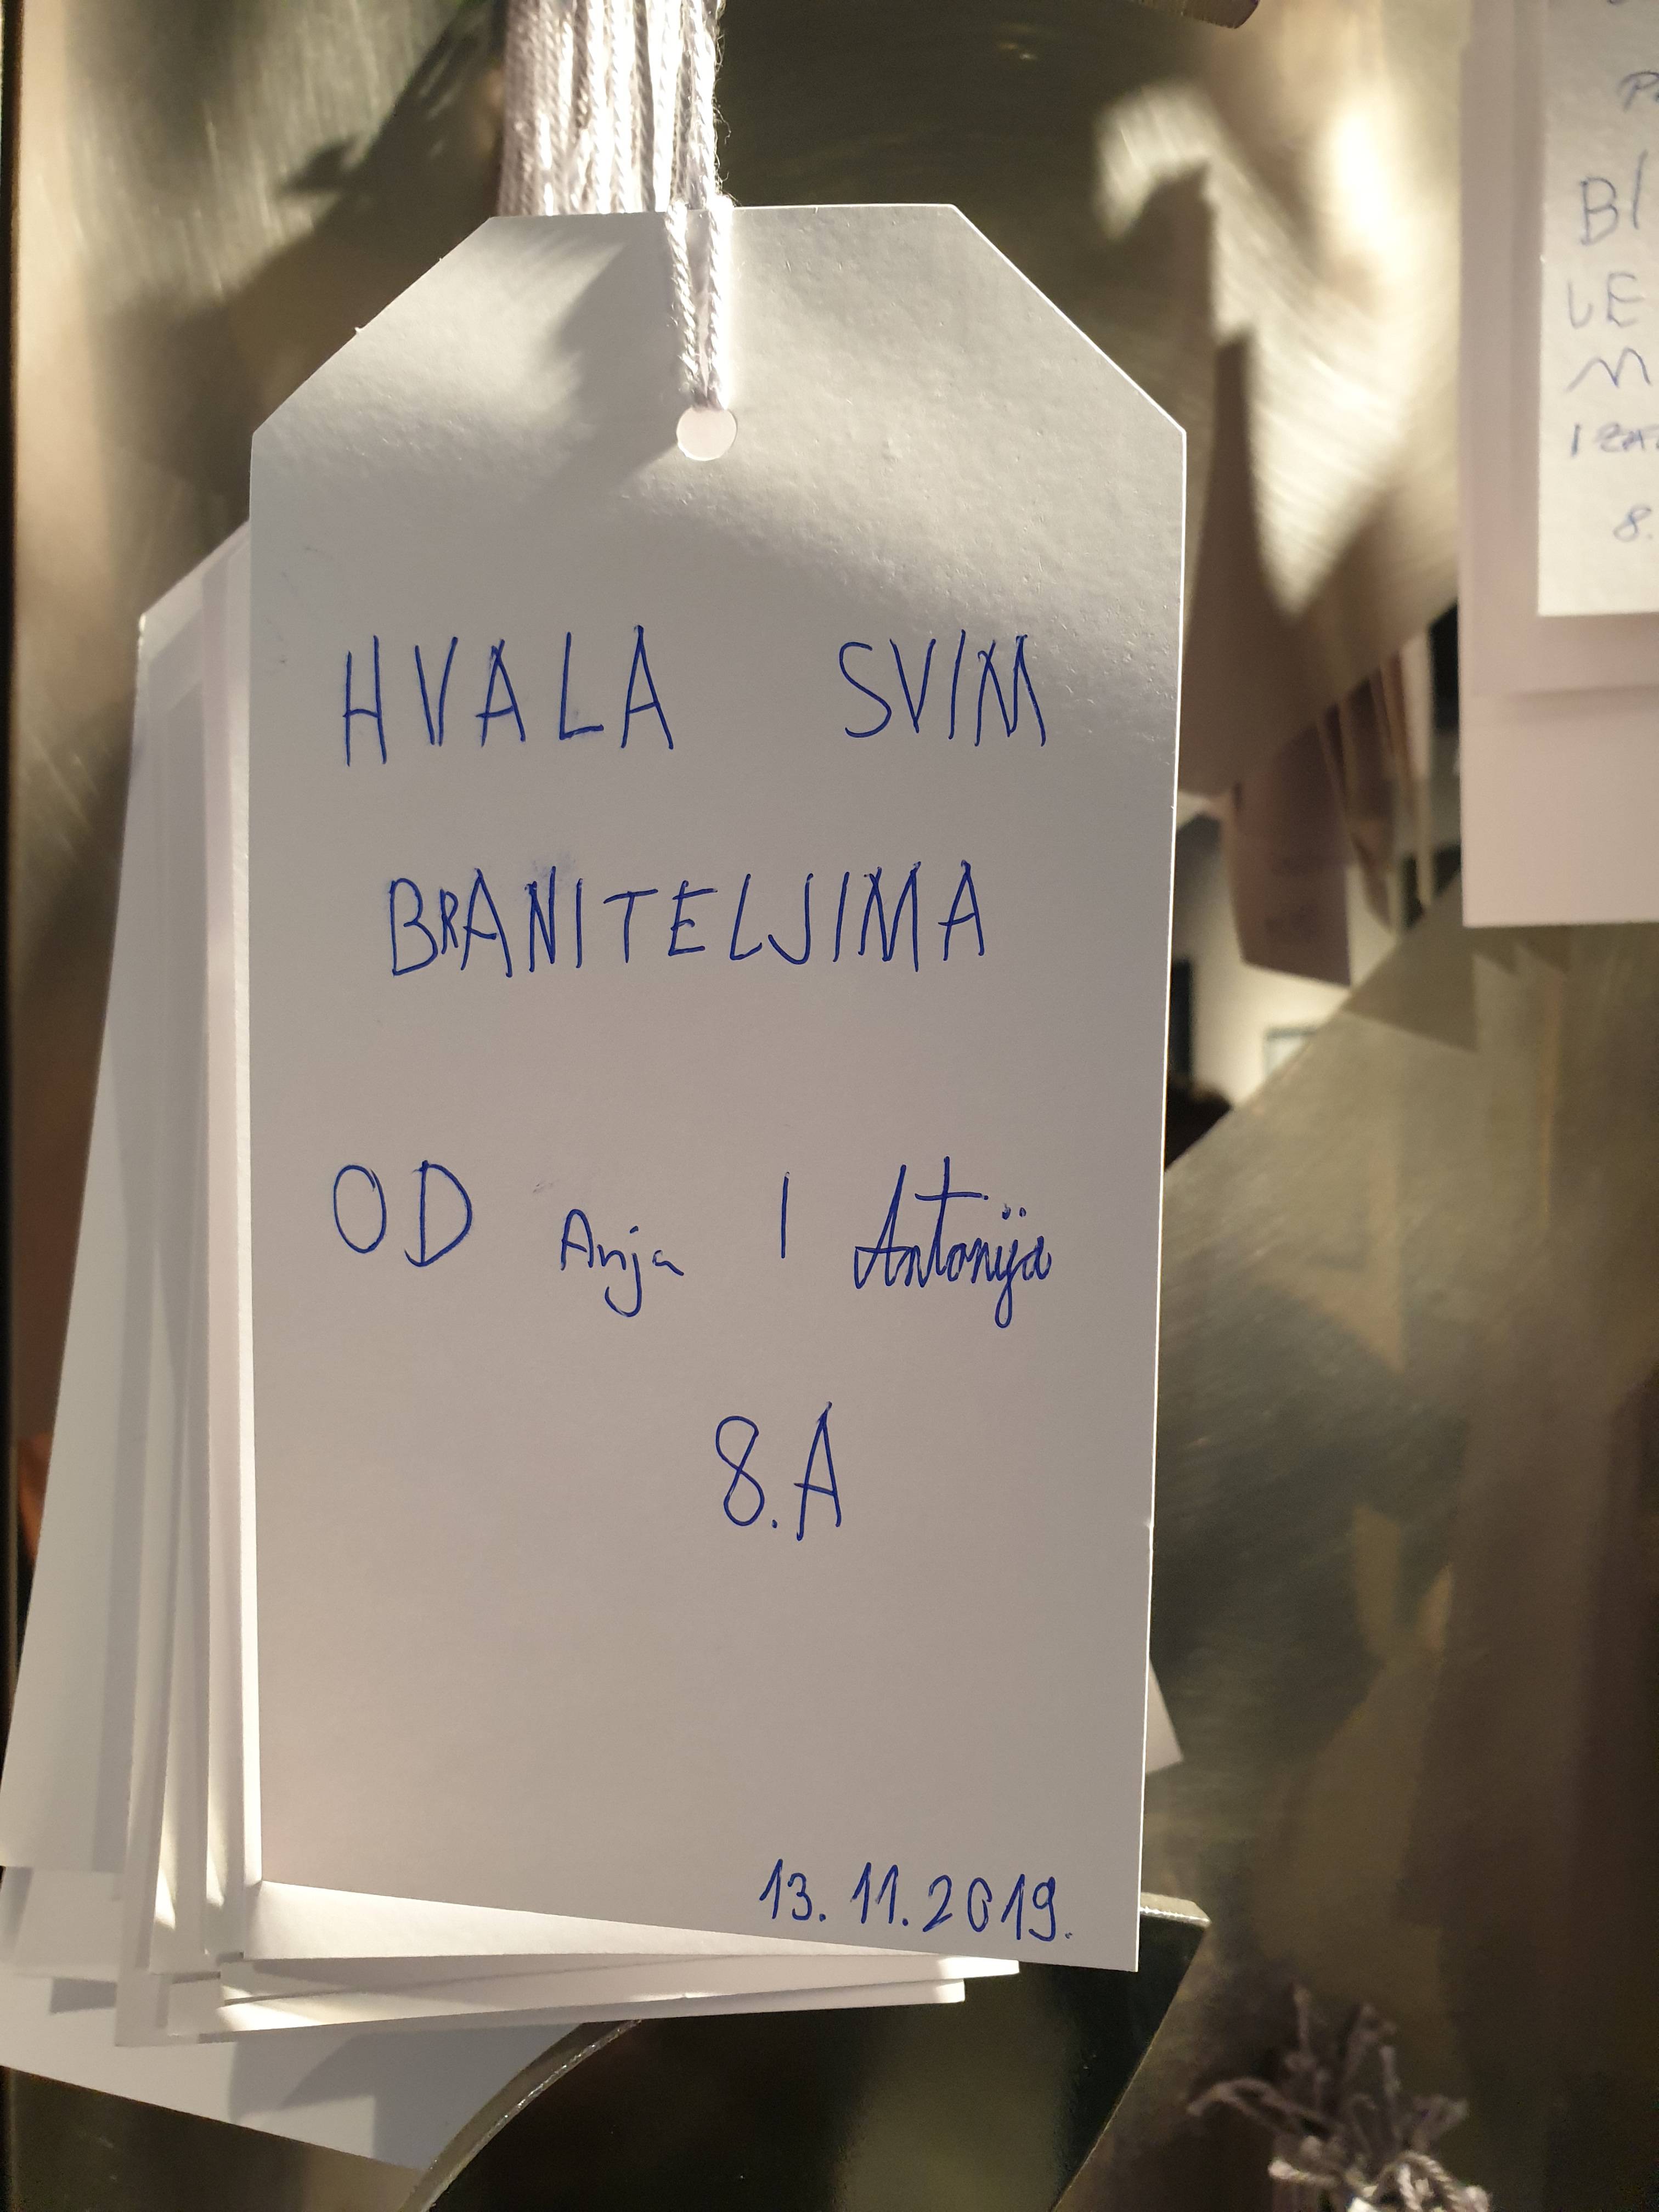 HVALA SVIM
BRANITELJIMA
OD Anja I Antonija
8.A
13.11.2019.
8.